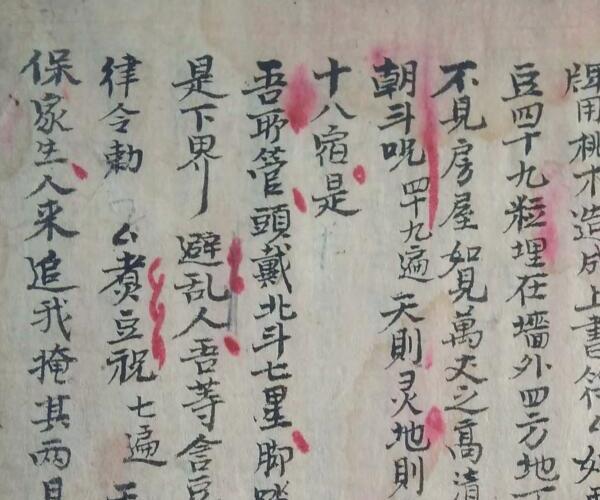 牌用桃木造成上書符
豆四十九粒埋在墻外四方地
不見房屋如見萬丈之高清
朝斗呪 四十九遍 天則灵地則
十八宿是
吾所管頭戴北斗七星脚踏
是下界 避乱人吾等含豆
律令勅 厶煮豆祝 七遍 天
保家生人来追我掩其两目